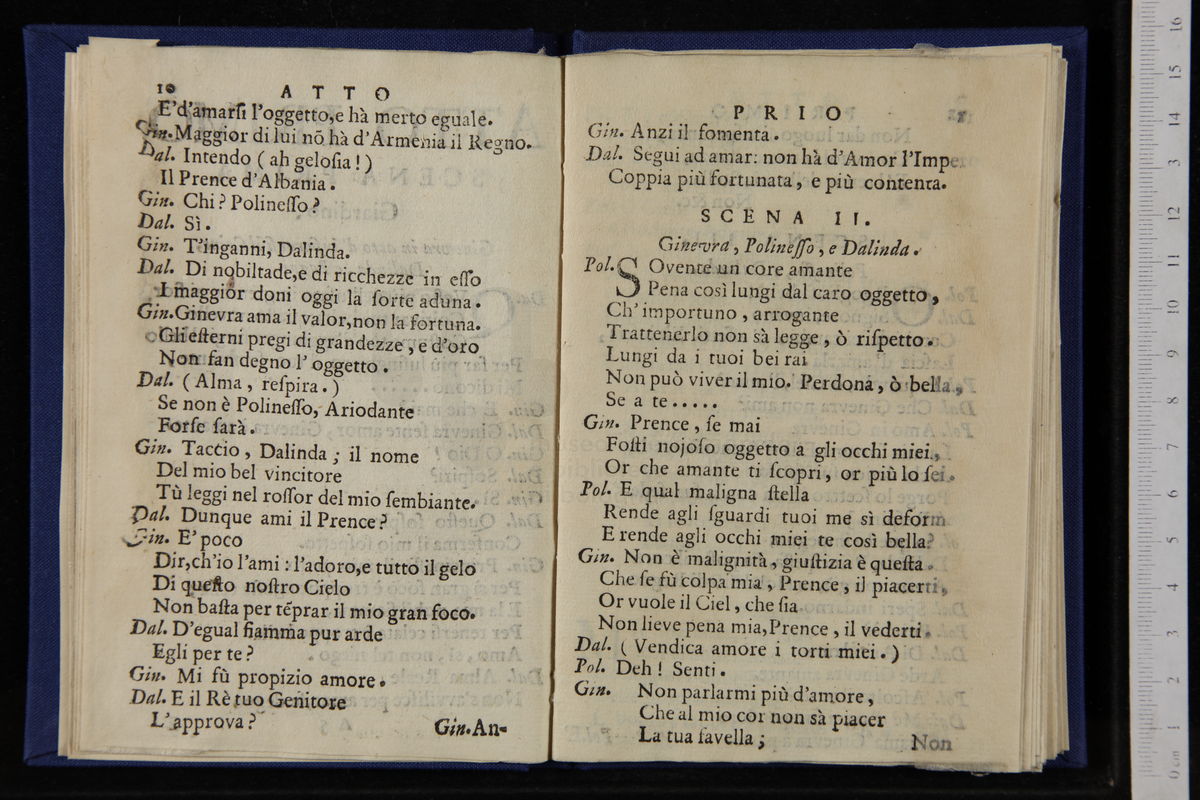 10 ATTO
E'd'amarſi l'oggetto,e hà merto eguale.
Gin.Maggior di lui nō hà d'Armenia il Regno.
Dal. Intendo ( ah geloſia ! )
Il Prence d'Albania .
Gin. Chi ? Polineſſo ?
Dal. Sì .
Gin. T'inganni, Dalinda.
Dal. Di nobiltade,e di ricchezze in eſſo
I maggior doni oggi la ſorte aduna .
Gin.Ginevra ama il valor,non la fortuna.
Gli eſterni pregi di grandezze , e d'oro
Non fan degno l' oggetto .
Dal. ( Alma , reſpira . )
Se non è Polineſſo, Ariodante
Forſe ſarà .
Gin. Taccio , Dalinda ; il nome
Del mio bel vincitore
Tù leggi nel roſſor del mio ſembiante.
Dal. Dunque ami il Prence ?
Gin. E' poco
Dir,ch'io l'ami : l'adoro,e tutto il gelo
Di queſto noſtro Cielo
Non baſta per tēprar il mio gran foco.
Dal. D'egual fiamma pur arde
Egli per te ?
Gin. Mi fù propizio amore .
Dal. E il Rè tuo Genitore
L'approva ?
Gin.An-
PRIO
Gin. Anzi il fomenta .
Dal. Segui ad amar: non hà d'Amor l'Impero
Coppia più fortunata , e più contenta.
SCENA II.
Ginevra , Polineſſo , e Dalinda .
Pol. SOvente un core amante
Pena così lungi dal caro oggetto ,
Ch' importuno , arrogante
Trattenerlo non sà legge , ò riſpetto .
Lungi da i tuoi bei rai
Non può viver il mio. Perdona , ò bella ,
Se a te . . . . .
Gin. Prence , ſe mai
Foſti nojoſo oggetto a gli occhi miei ,
Or che amante ti ſcopri , or più lo ſei .
Pol. E qual maligna ſtella
Rende agli ſguardi tuoi me sì deform
E rende agli occhi miei te così bella?
Gin. Non è malignità , giuſtizia è queſta .
Che ſe fù colpa mia , Prence , il piacerti ,
Or vuole il Ciel , che ſia
Non lieve pena mia,Prence , il vederti .
Dal. ( Vendica amore i torti miei . )
Pol. Deh ! Senti .
Gin. Non parlarmi più d'amore ,
Che al mio cor non sà piacer
La tua favella ;
Non